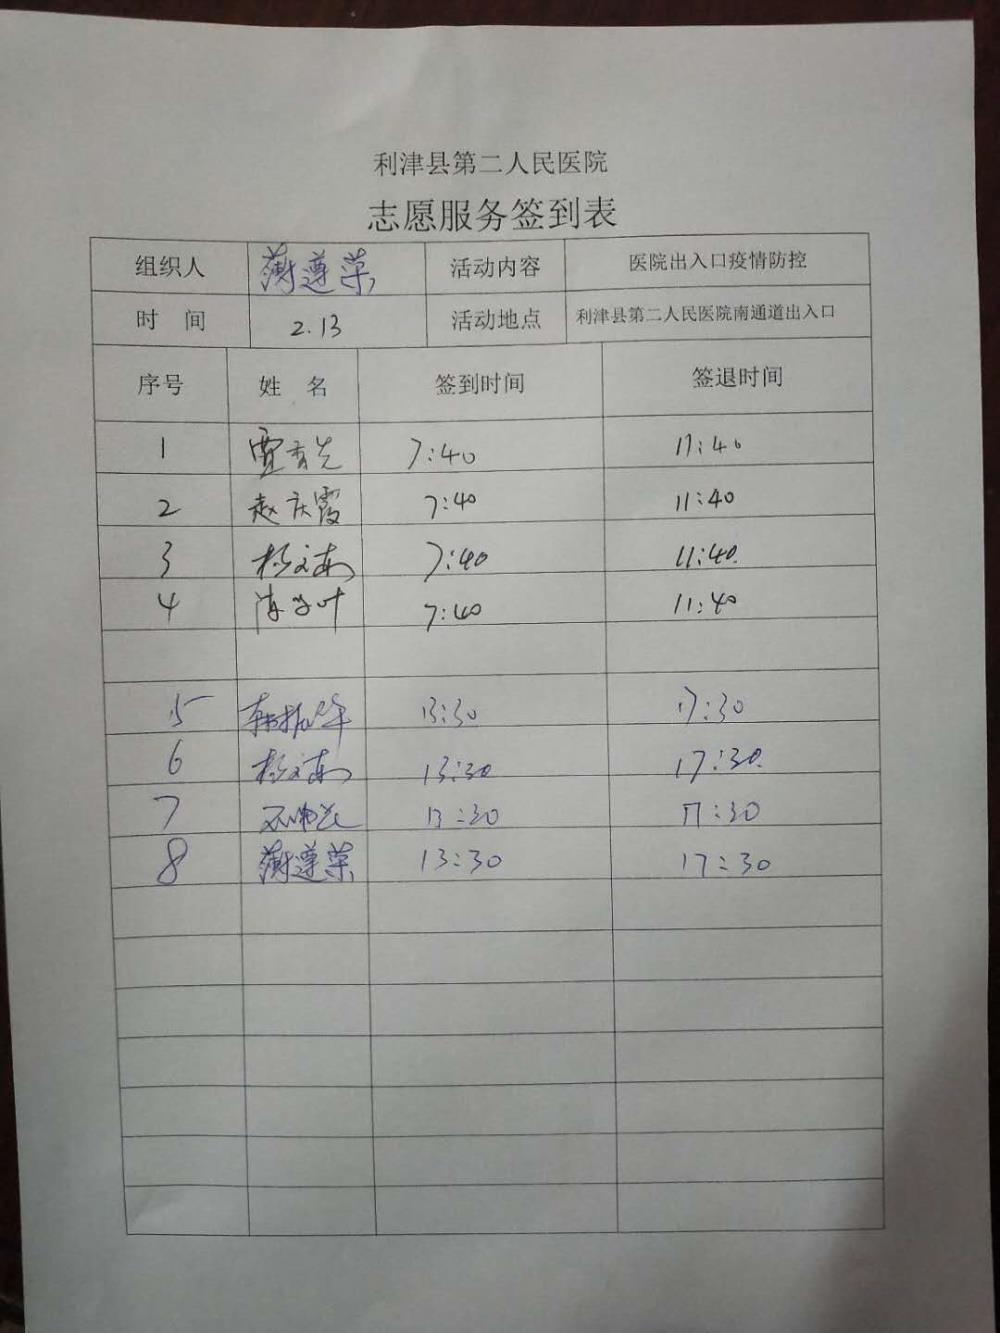 利津县第二人民医院
志愿服务签到表
组织人 薄遵荣 活动内容 医院出入口疫情防控
时 间 2.13 活动地点 利津县第二人民医院南通道出入口
序号 姓 名 签到时间 签退时间
1 7:40 11:40
2 赵庆霞 7:40 11:40
3 杨文南 7:40 11:40
4 7:40 11:40
5 13:30 17:30
6 杨文南 13:30 17:30
7 13:30 17:30
8 薄遵荣 13:30 17:30